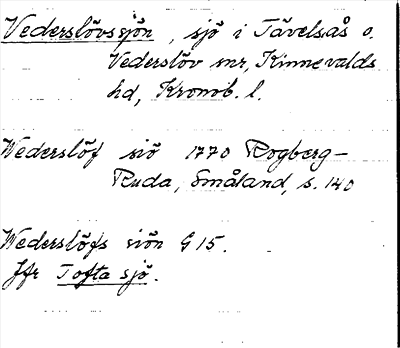 Vederslövssjön, sjö i Tävelsås o.
Vederslöv snr, Kinnevalds
hd, Kronob. l.
Wederslöf siö 1770 Rogberg-
Ruda, Småland, s. 140
Wederslöfs siön G 15.
Jfr Tofta sjö.